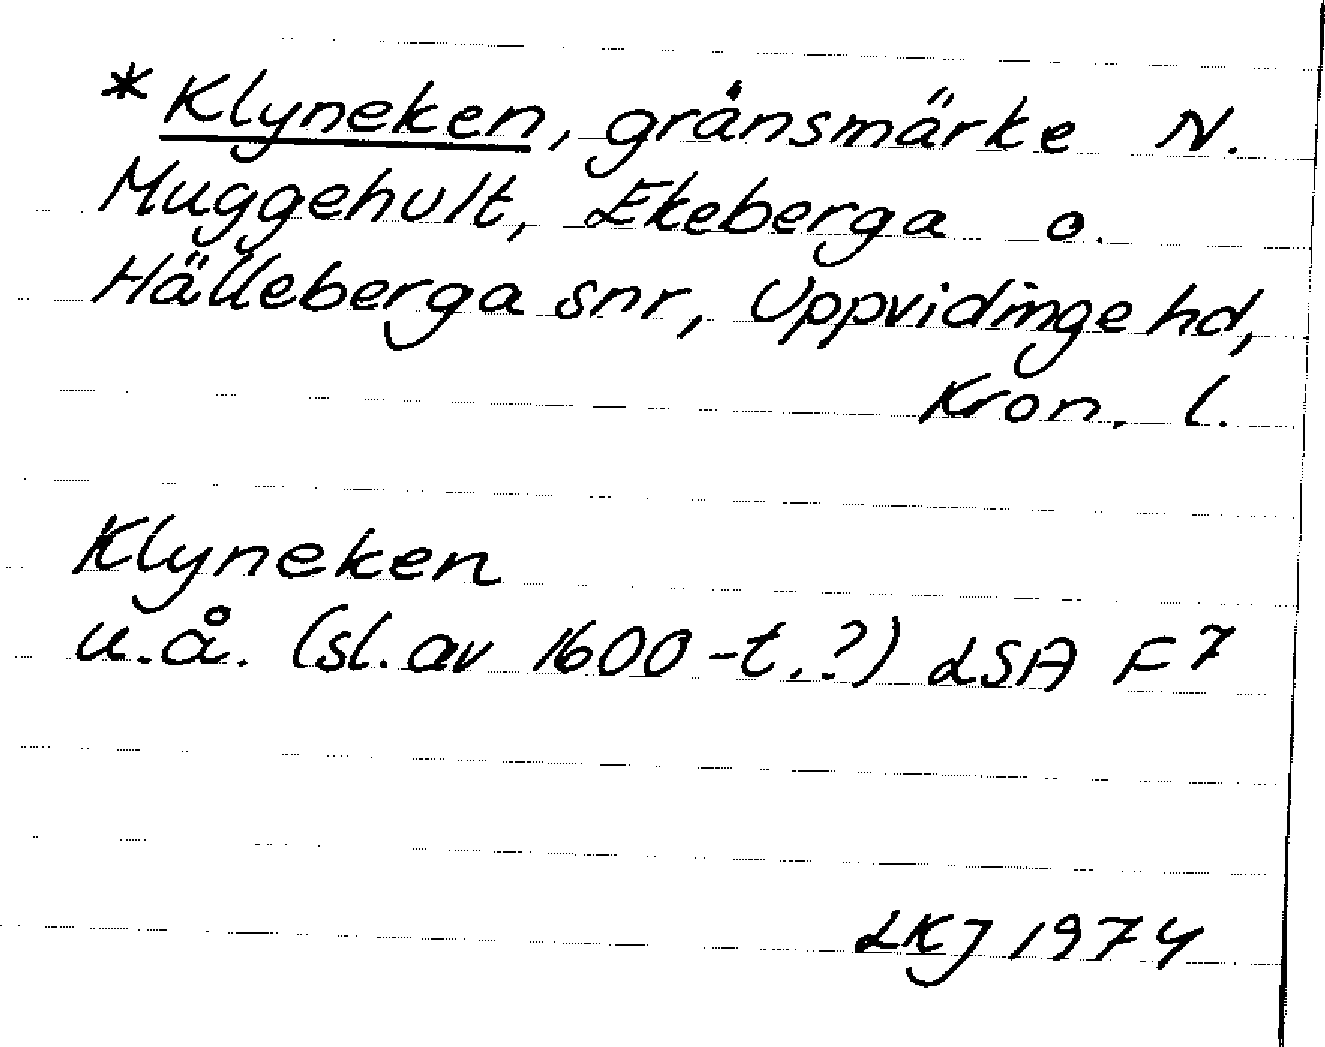 *Klyneken, gränsmärke N.
Muggehult, Ekeberga o.
Hälleberga snr, Uppvidinge hd,
Kron. l.
Klyneken
u.å. (sl. av 1600-t.?) LSA F7
LKJ 1974